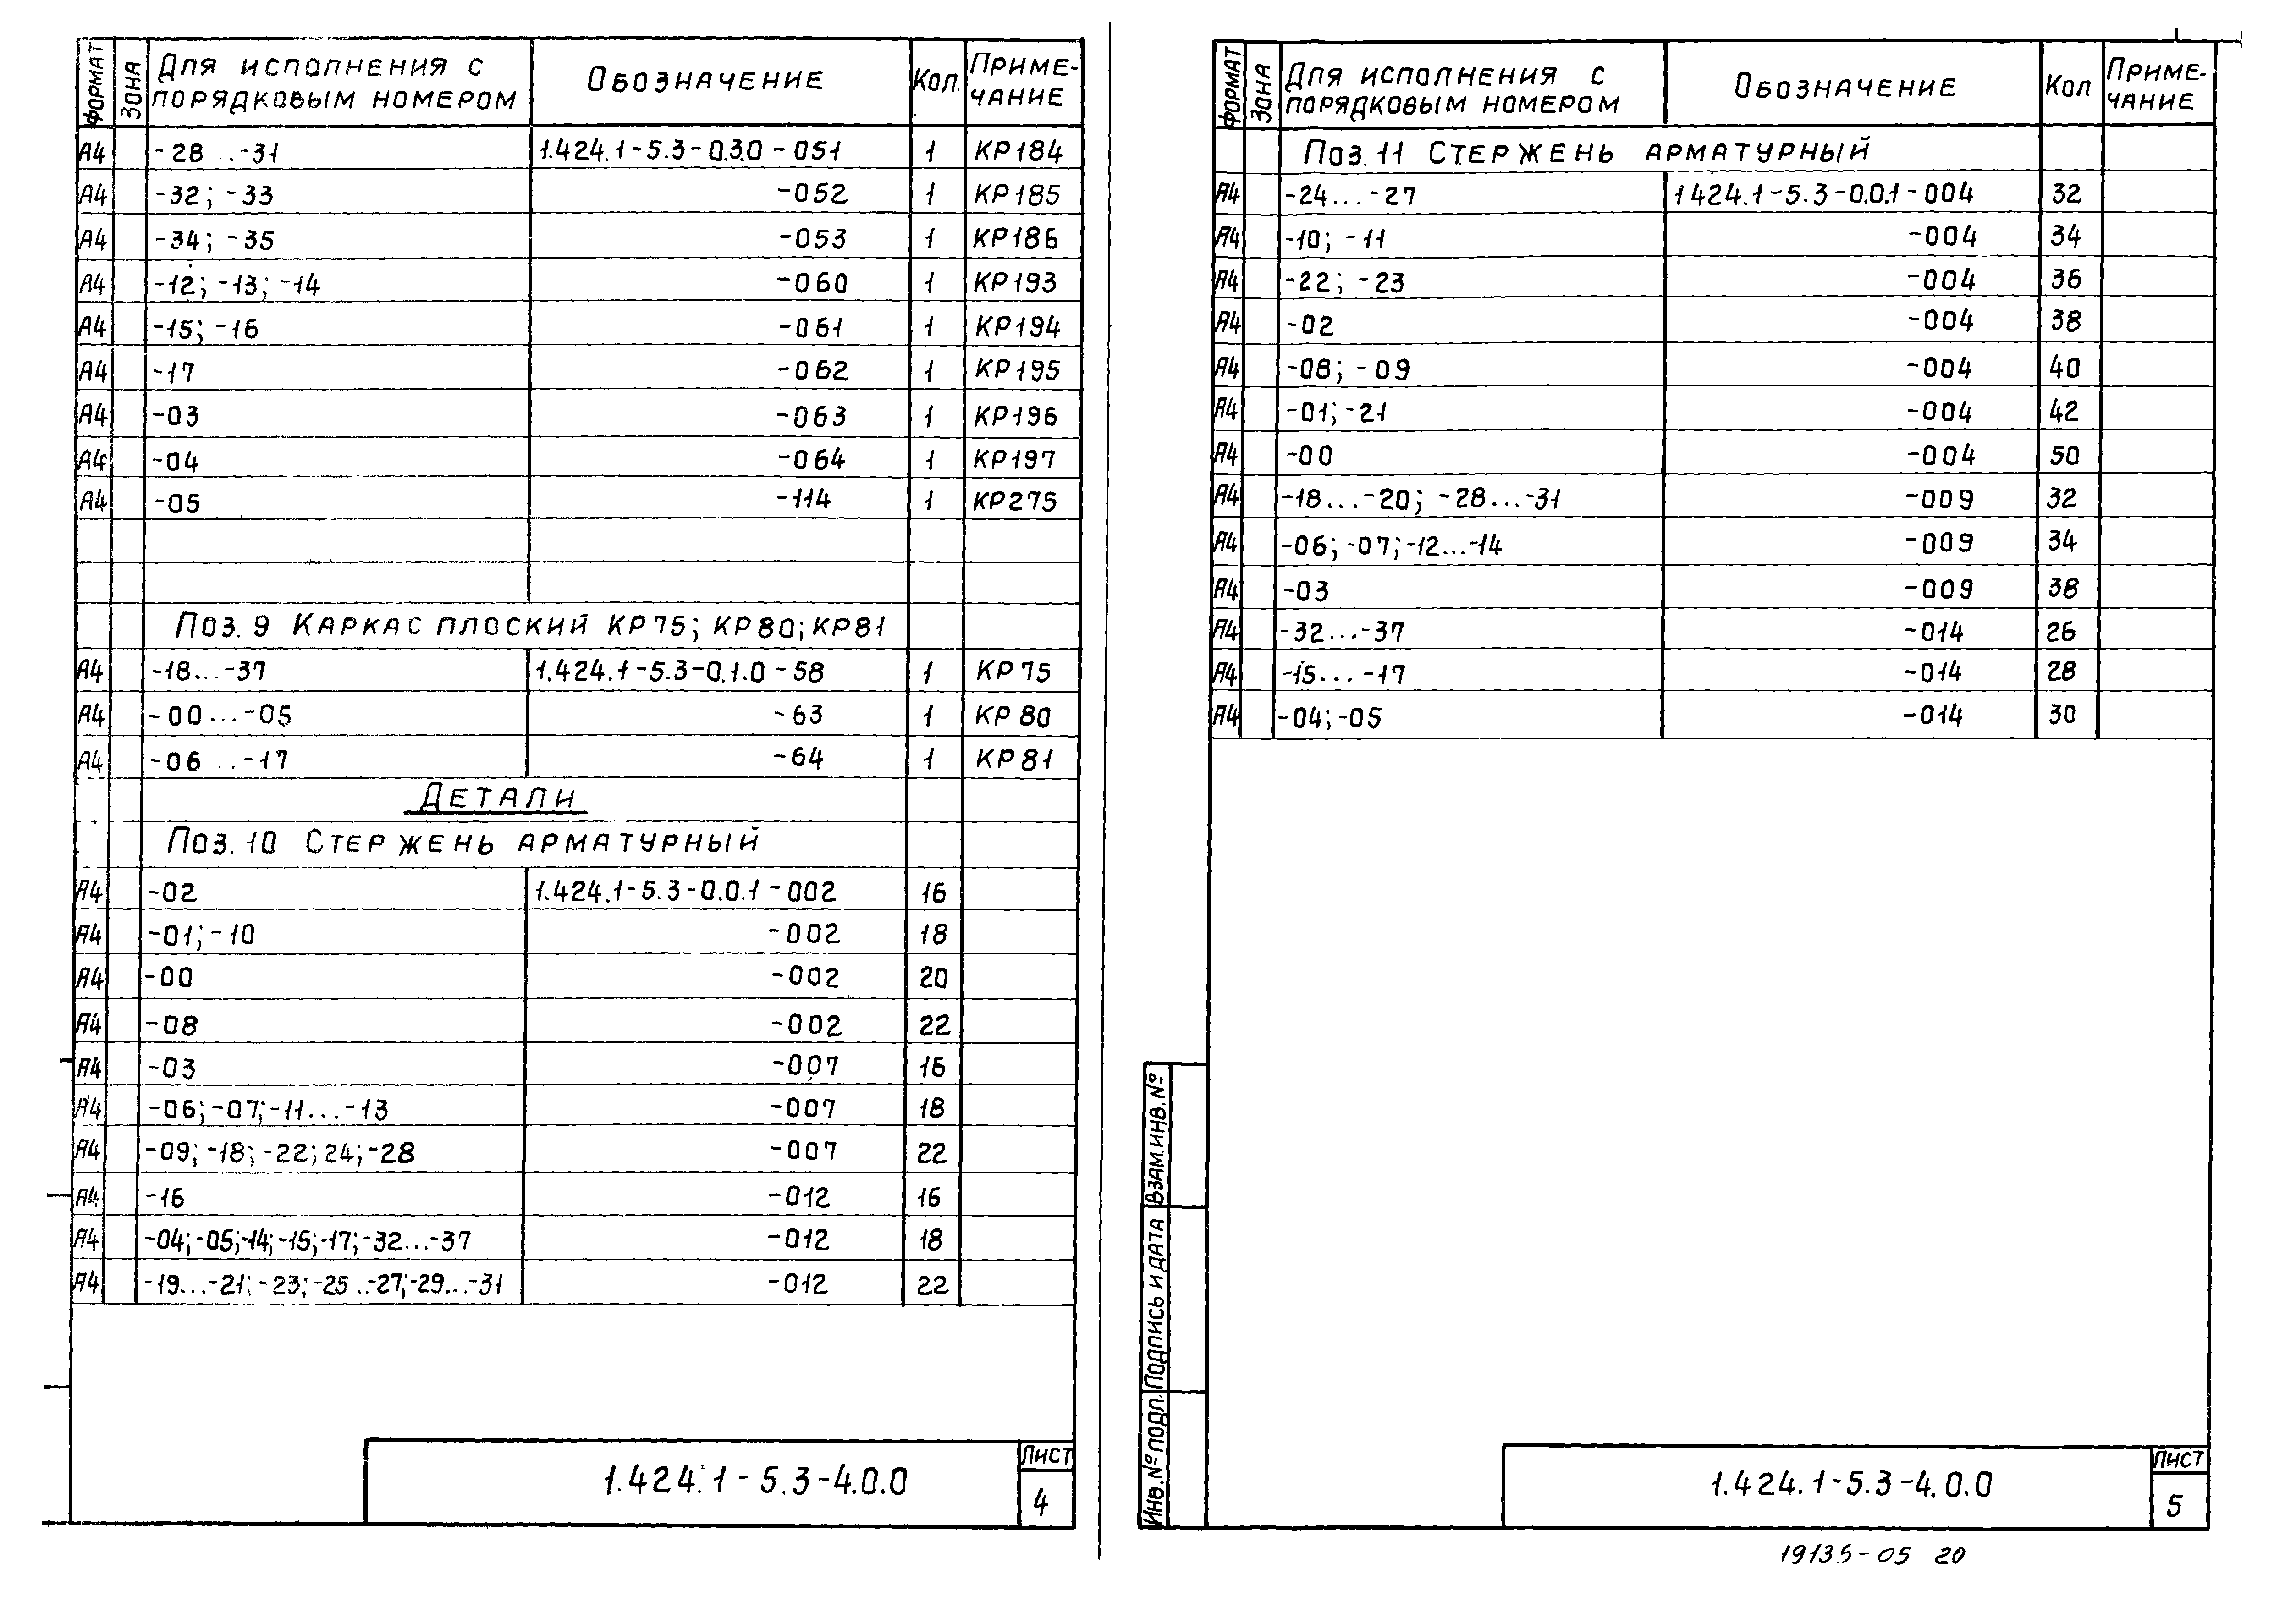 ФОРМАТ ЗОНА Для исполнения с порядковым номером Обозначение Кол. Приме-чание
А4 -28...-31 1.424.1-5.3-0.3.0-051 1 КР184
А4 -32; -33 -052 1 КР185
А4 -34; -35 -053 1 КР186
А4 -12; -13; -14 -060 1 КР193
А4 -15; -16 -061 1 КР194
А4 -17 -062 1 КР195
А4 -03 -063 1 КР196
А4 -04 -064 1 КР197
А4 -05 -114 1 КР275
Поз. 9 Каркас плоский КР75; КР80; КР81
А4 -18...-37 1.424.1-5.3-0.1.0-58 1 КР75
А4 -00...-05 -63 1 КР80
А4 -06...-17 -64 1 КР81
Детали
Поз. 10 Стержень арматурный
А4 -02 1.424.1-5.3-0.0.1-002 16
А4 -01; -10 -002 18
А4 -00 -002 20
А4 -08 -002 22
А4 -03 -007 16
А4 -06; -07; -11...-13 -007 18
А4 -09; -18; -22; 24; -28 -007 22
А4 -16 -012 16
А4 -04; -05; -14; -15; -17; -32...-37 -012 18
А4 -19...-21; -23; -25..-27; -29...-31 -012 22
1.424.1-5.3-4.0.0
Лист
4
ФОРМАТ ЗОНА Для исполнения с порядковым номером Обозначение Кол Приме-чание
Поз. 11 Стержень арматурный
А4 -24...-27 1424.1-5.3-0.0.1-004 32
А4 -10; -11 -004 34
А4 -22; -23 -004 36
А4 -02 -004 38
А4 -08; -09 -004 40
А4 -01; -21 -004 42
А4 -00 -004 50
А4 -18...-20; -28...-31 -009 32
А4 -06; -07; -12...-14 -009 34
А4 -03 -009 38
А4 -32...-37 -014 26
А4 -15...-17 -014 28
А4 -04; -05 -014 30
Взам. инв. №
Подпись и дата
Инв. № подл.
1.424.1-5.3-4.0.0
Лист
5
19135-05 20